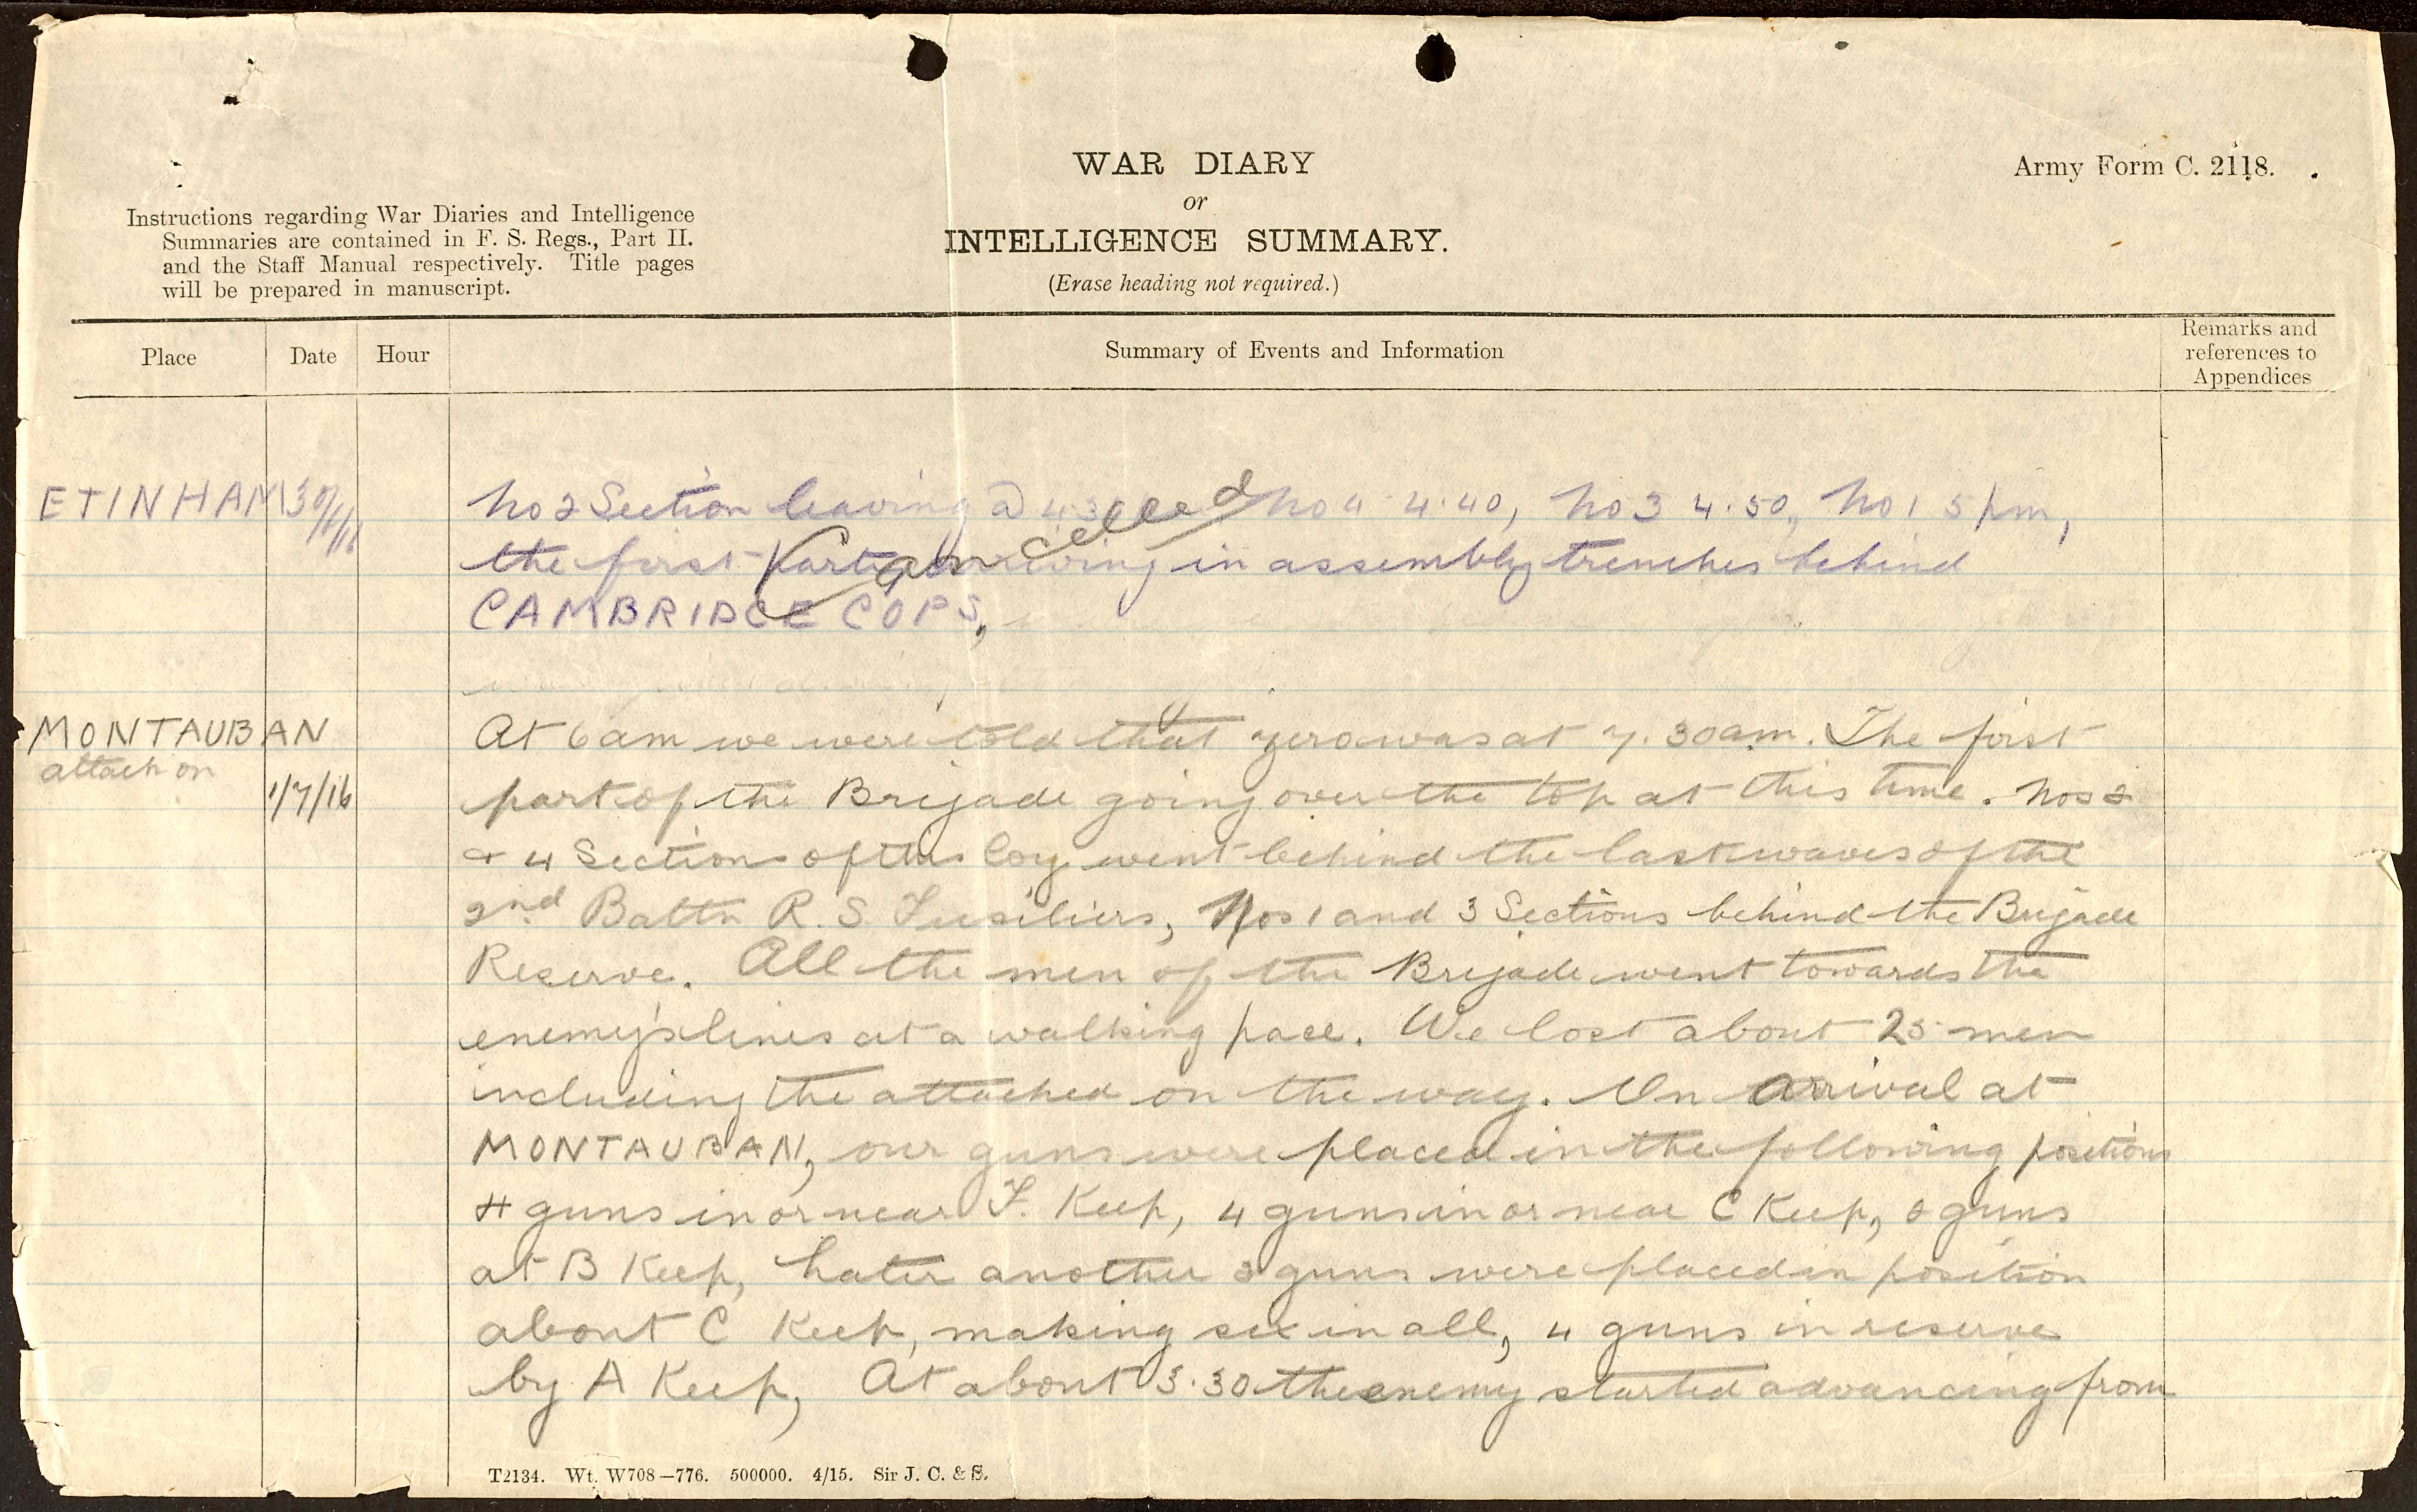 WAR DIARY
or
INTELLIGENCE SUMMARY.
(Erase heading not required.)
Army Form C. 2118.
Instructions regarding War Diaries and Intelligence
Summaries are contained in F. S. Regs., Part II.
and the Staff Manual respectively. Title pages
will be prepared in manuscript.
Place
Date
Hour
Summary of Events and Information
Remarks and
references to
Appendices
ETINHAM
No 2 Section leaving @ 4.30 No 4 4.40, No 3 4.50, No 1 5 pm,
Cancelled
the first party arriving in assembly trenches behind
CAMBRIDGE COPS,
MONTAUBAN
attack on
1/7/16
At 6 am we were told that zero was at 7.30 am. The first
part of the Brigade going over the top at this time. Nos 2
& 4 Sections of this Coy went behind the last waves of the
2nd Battn R. S. Fusiliers, Nos 1 and 3 Sections behind the Brigade
Reserve. All the men of the Brigade went towards the
enemy's lines at a walking pace. We lost about 25 men
including the attached on the way. On arrival at
MONTAUBAN, our guns were placed in the following positions
4 guns in or near F. Keep, 4 guns in or near C Keep, 2 guns
at B Keep, Later another 2 guns were placed in position
about C Keep, making six in all, 4 guns in reserve
by A Keep, At about 3.30 the enemy started advancing from
T2134. Wt. W708—776. 500000. 4/15. Sir J. C. & S.